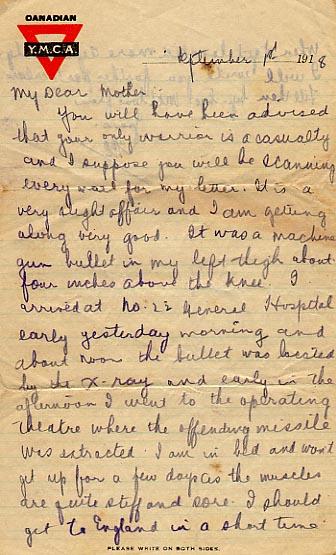 CANADIAN
Y.M.C.A.
September 1st 1918
My Dear Mother:
You will have been advised
that your only warrior is a casualty
and I suppose you will be scanning
every mail for my letter. It is a
very slight affair and I am getting
along very good. It was a machine
gun bullet in my left thigh about
four inches above the knee. I
arrived at No. 22 General Hospital
early yesterday morning and
about noon the bullet was located
by the X-ray and early in the
afternoon I went to the operating
theatre where the offending missile
was extracted. I am in bed and wont
get up for a few days as the muscles
are quite stiff and sore. I should
get to England in a short time
PLEASE WRITE ON BOTH SIDES.